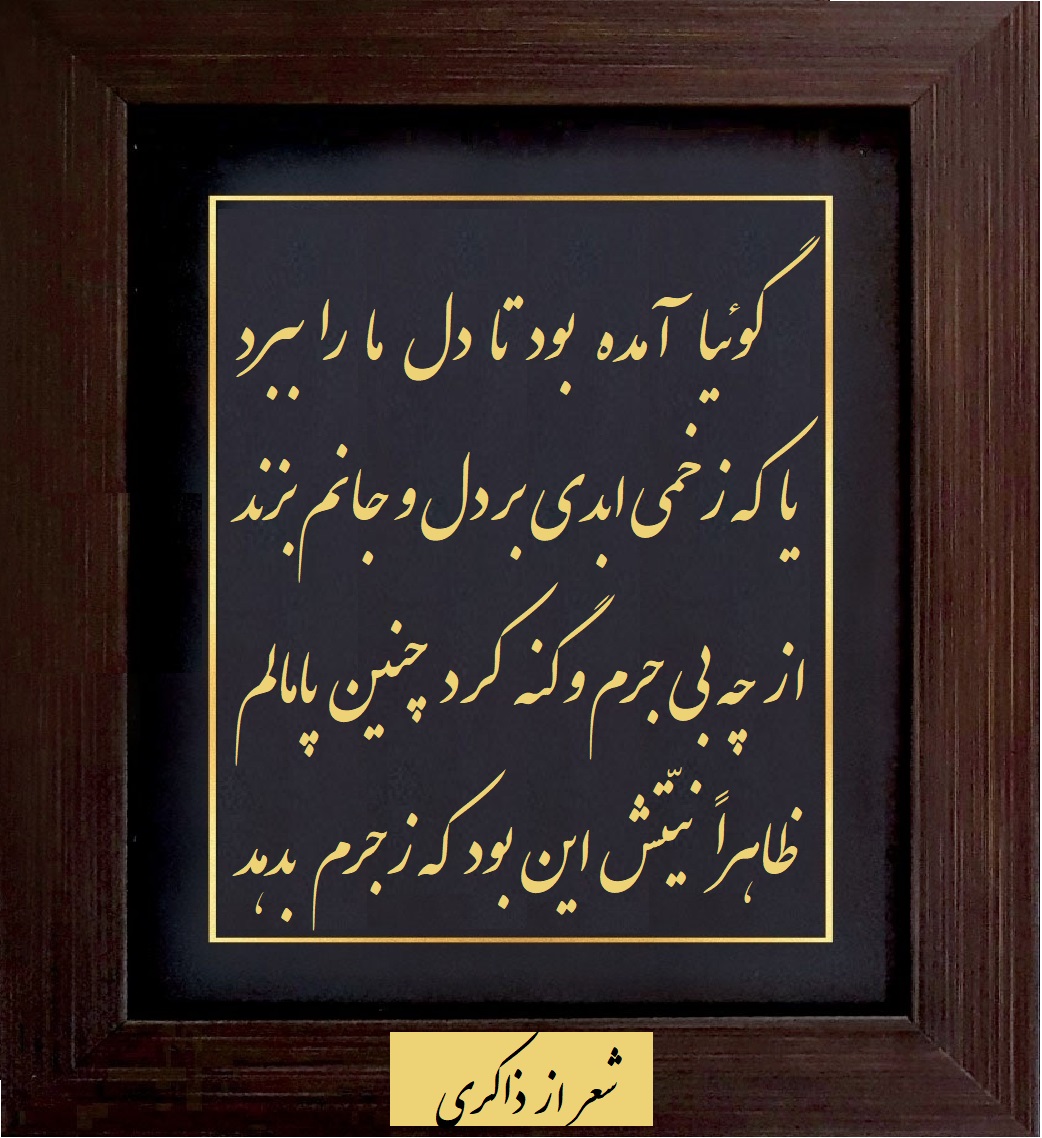 گوئیا آمده بود تا دل ما را ببرد
یا که زخمی ابدی بر دل و جانم بزند
از چه بی جرم و گنه کرد چنین پامالم
ظاهراً نیّتش این بود که زجرم بدهد
شعر از ذاکری